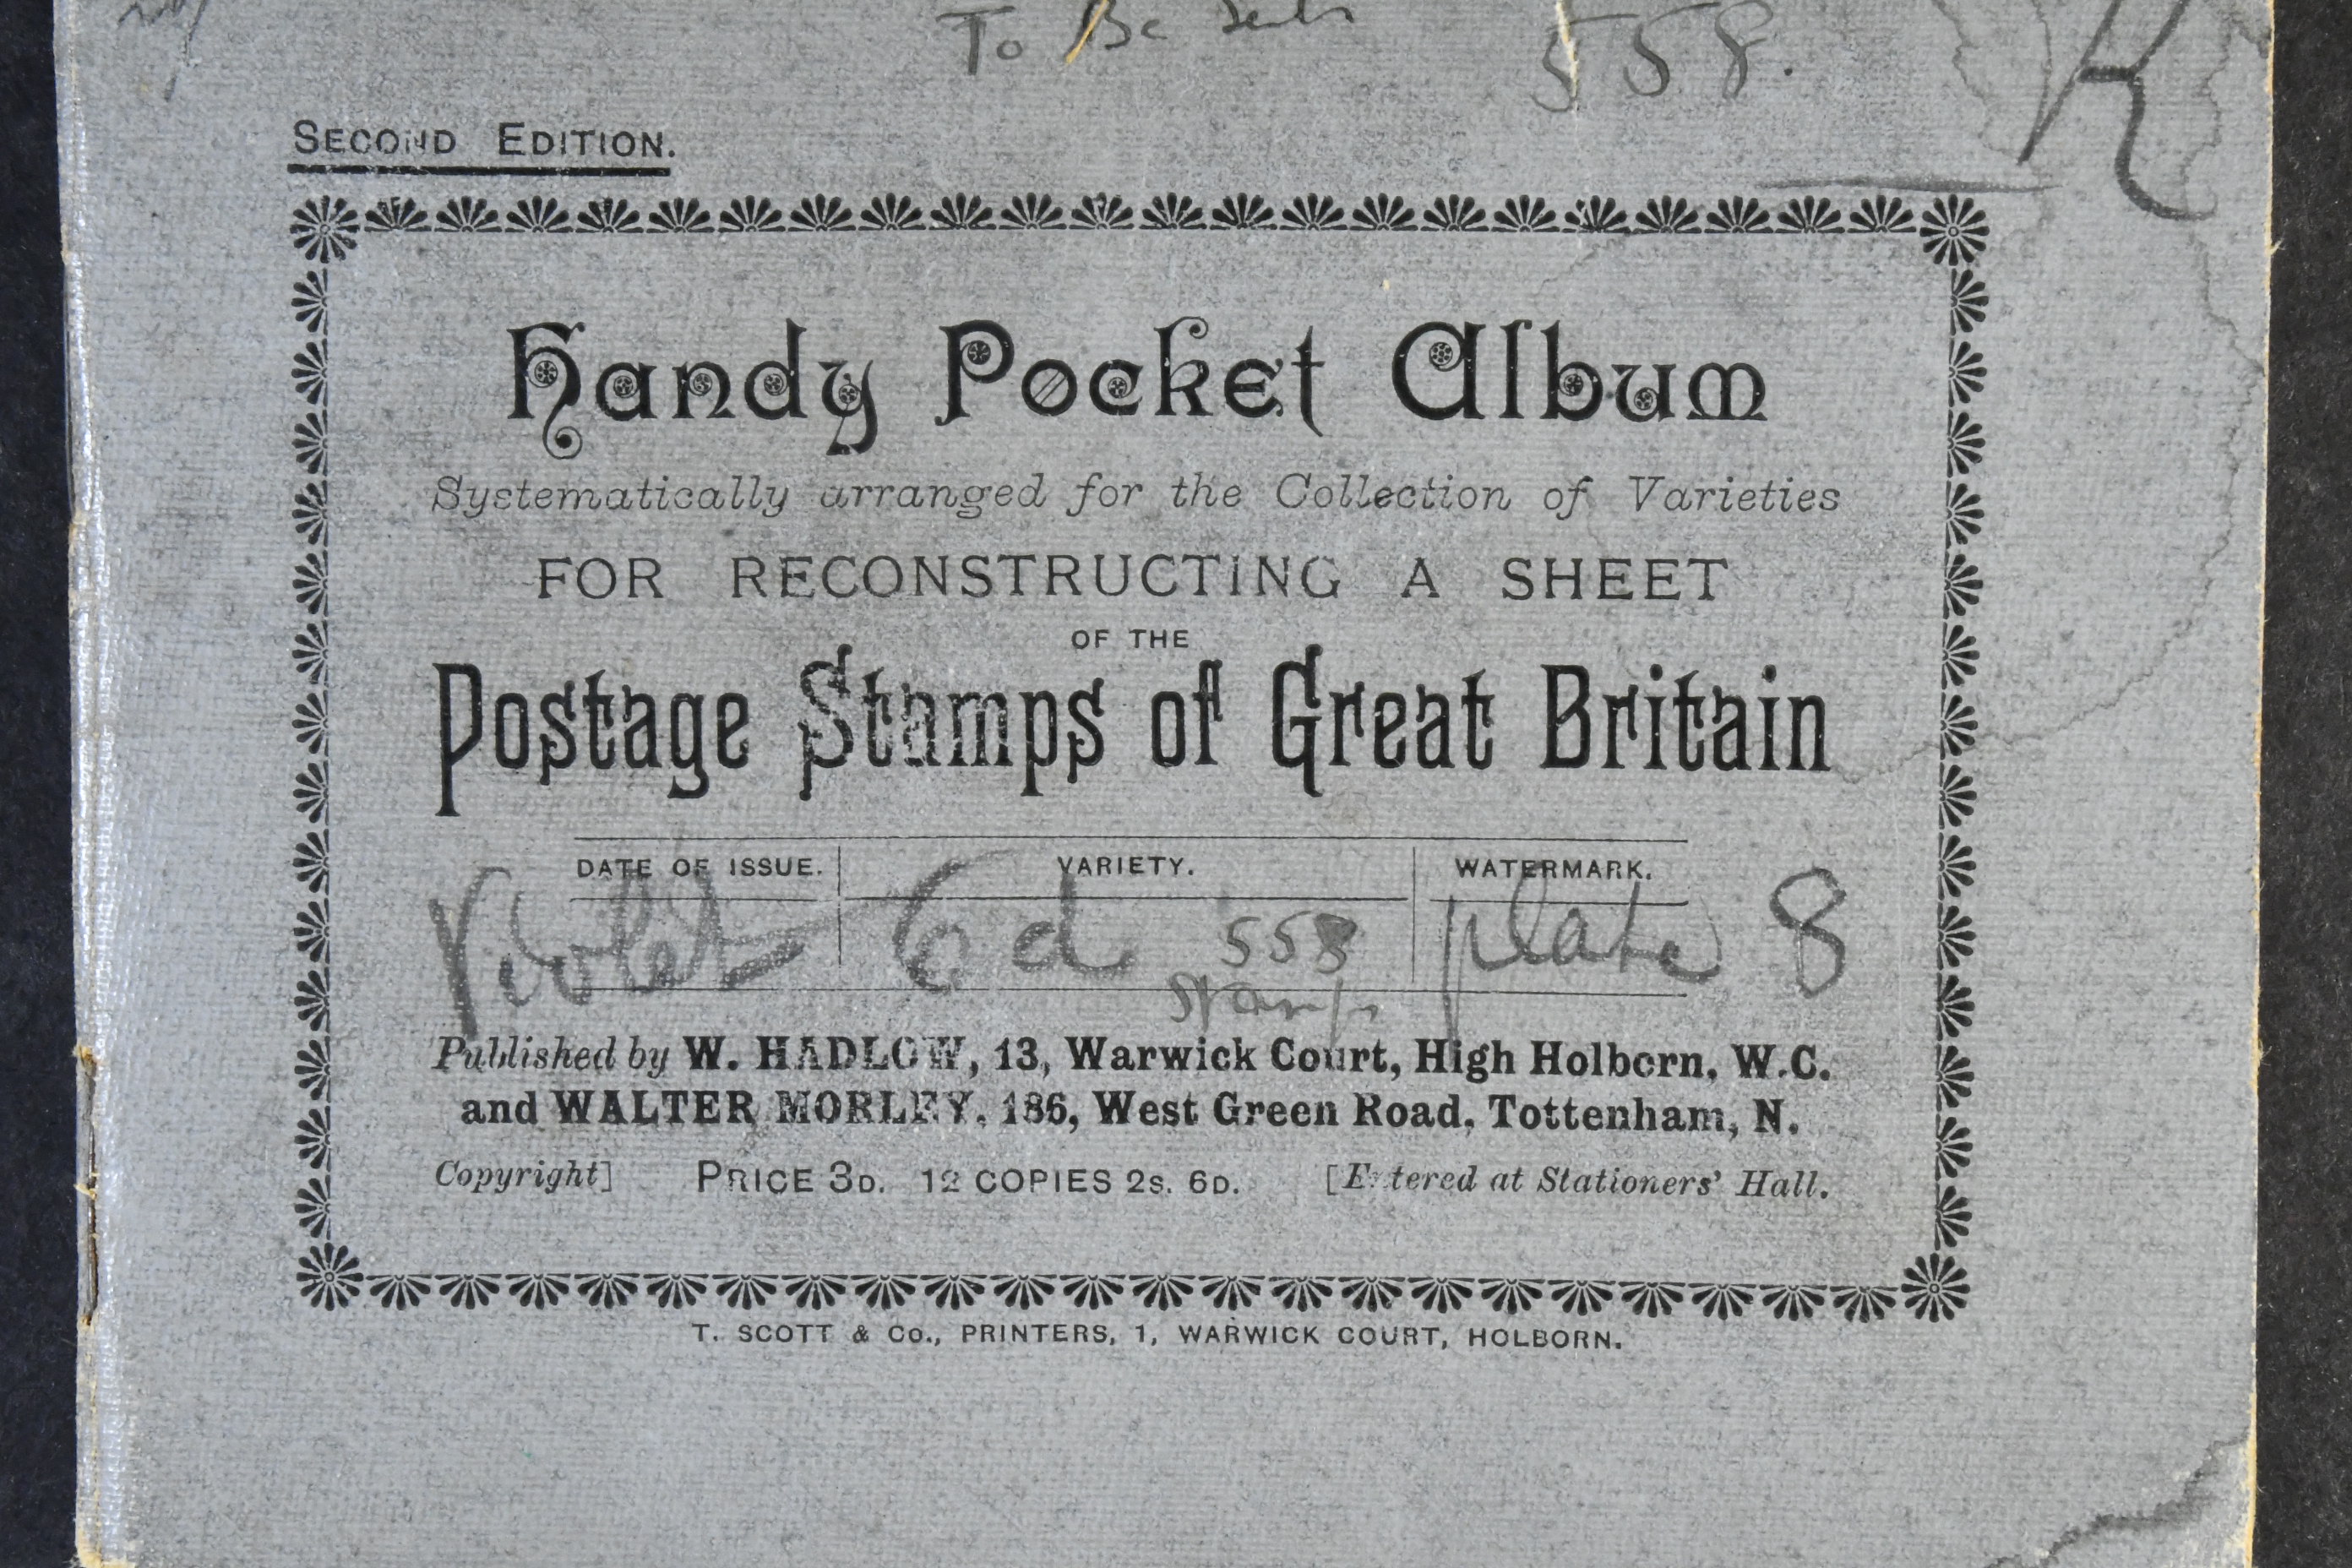 To Be
558.
SECOND EDITION.
Handy Pocket Album
Systematically arranged for the Collection of Varieties
FOR RECONSTRUCTING A SHEET
OF THE
Postage Stamps of Great Britain
DATE OF ISSUE. VARIETY. WATERMARK.
Violet 6d 558 plate 8
Stamps
Published by W. HADLOW, 13, Warwick Court, High Holborn, W.C.
and WALTER MORLEY, 186, West Green Road, Tottenham, N.
Copyright] PRICE 3D. 12 COPIES 2S. 6D. [Entered at Stationers' Hall.
T. SCOTT & Co., PRINTERS, 1, WARWICK COURT, HOLBORN.